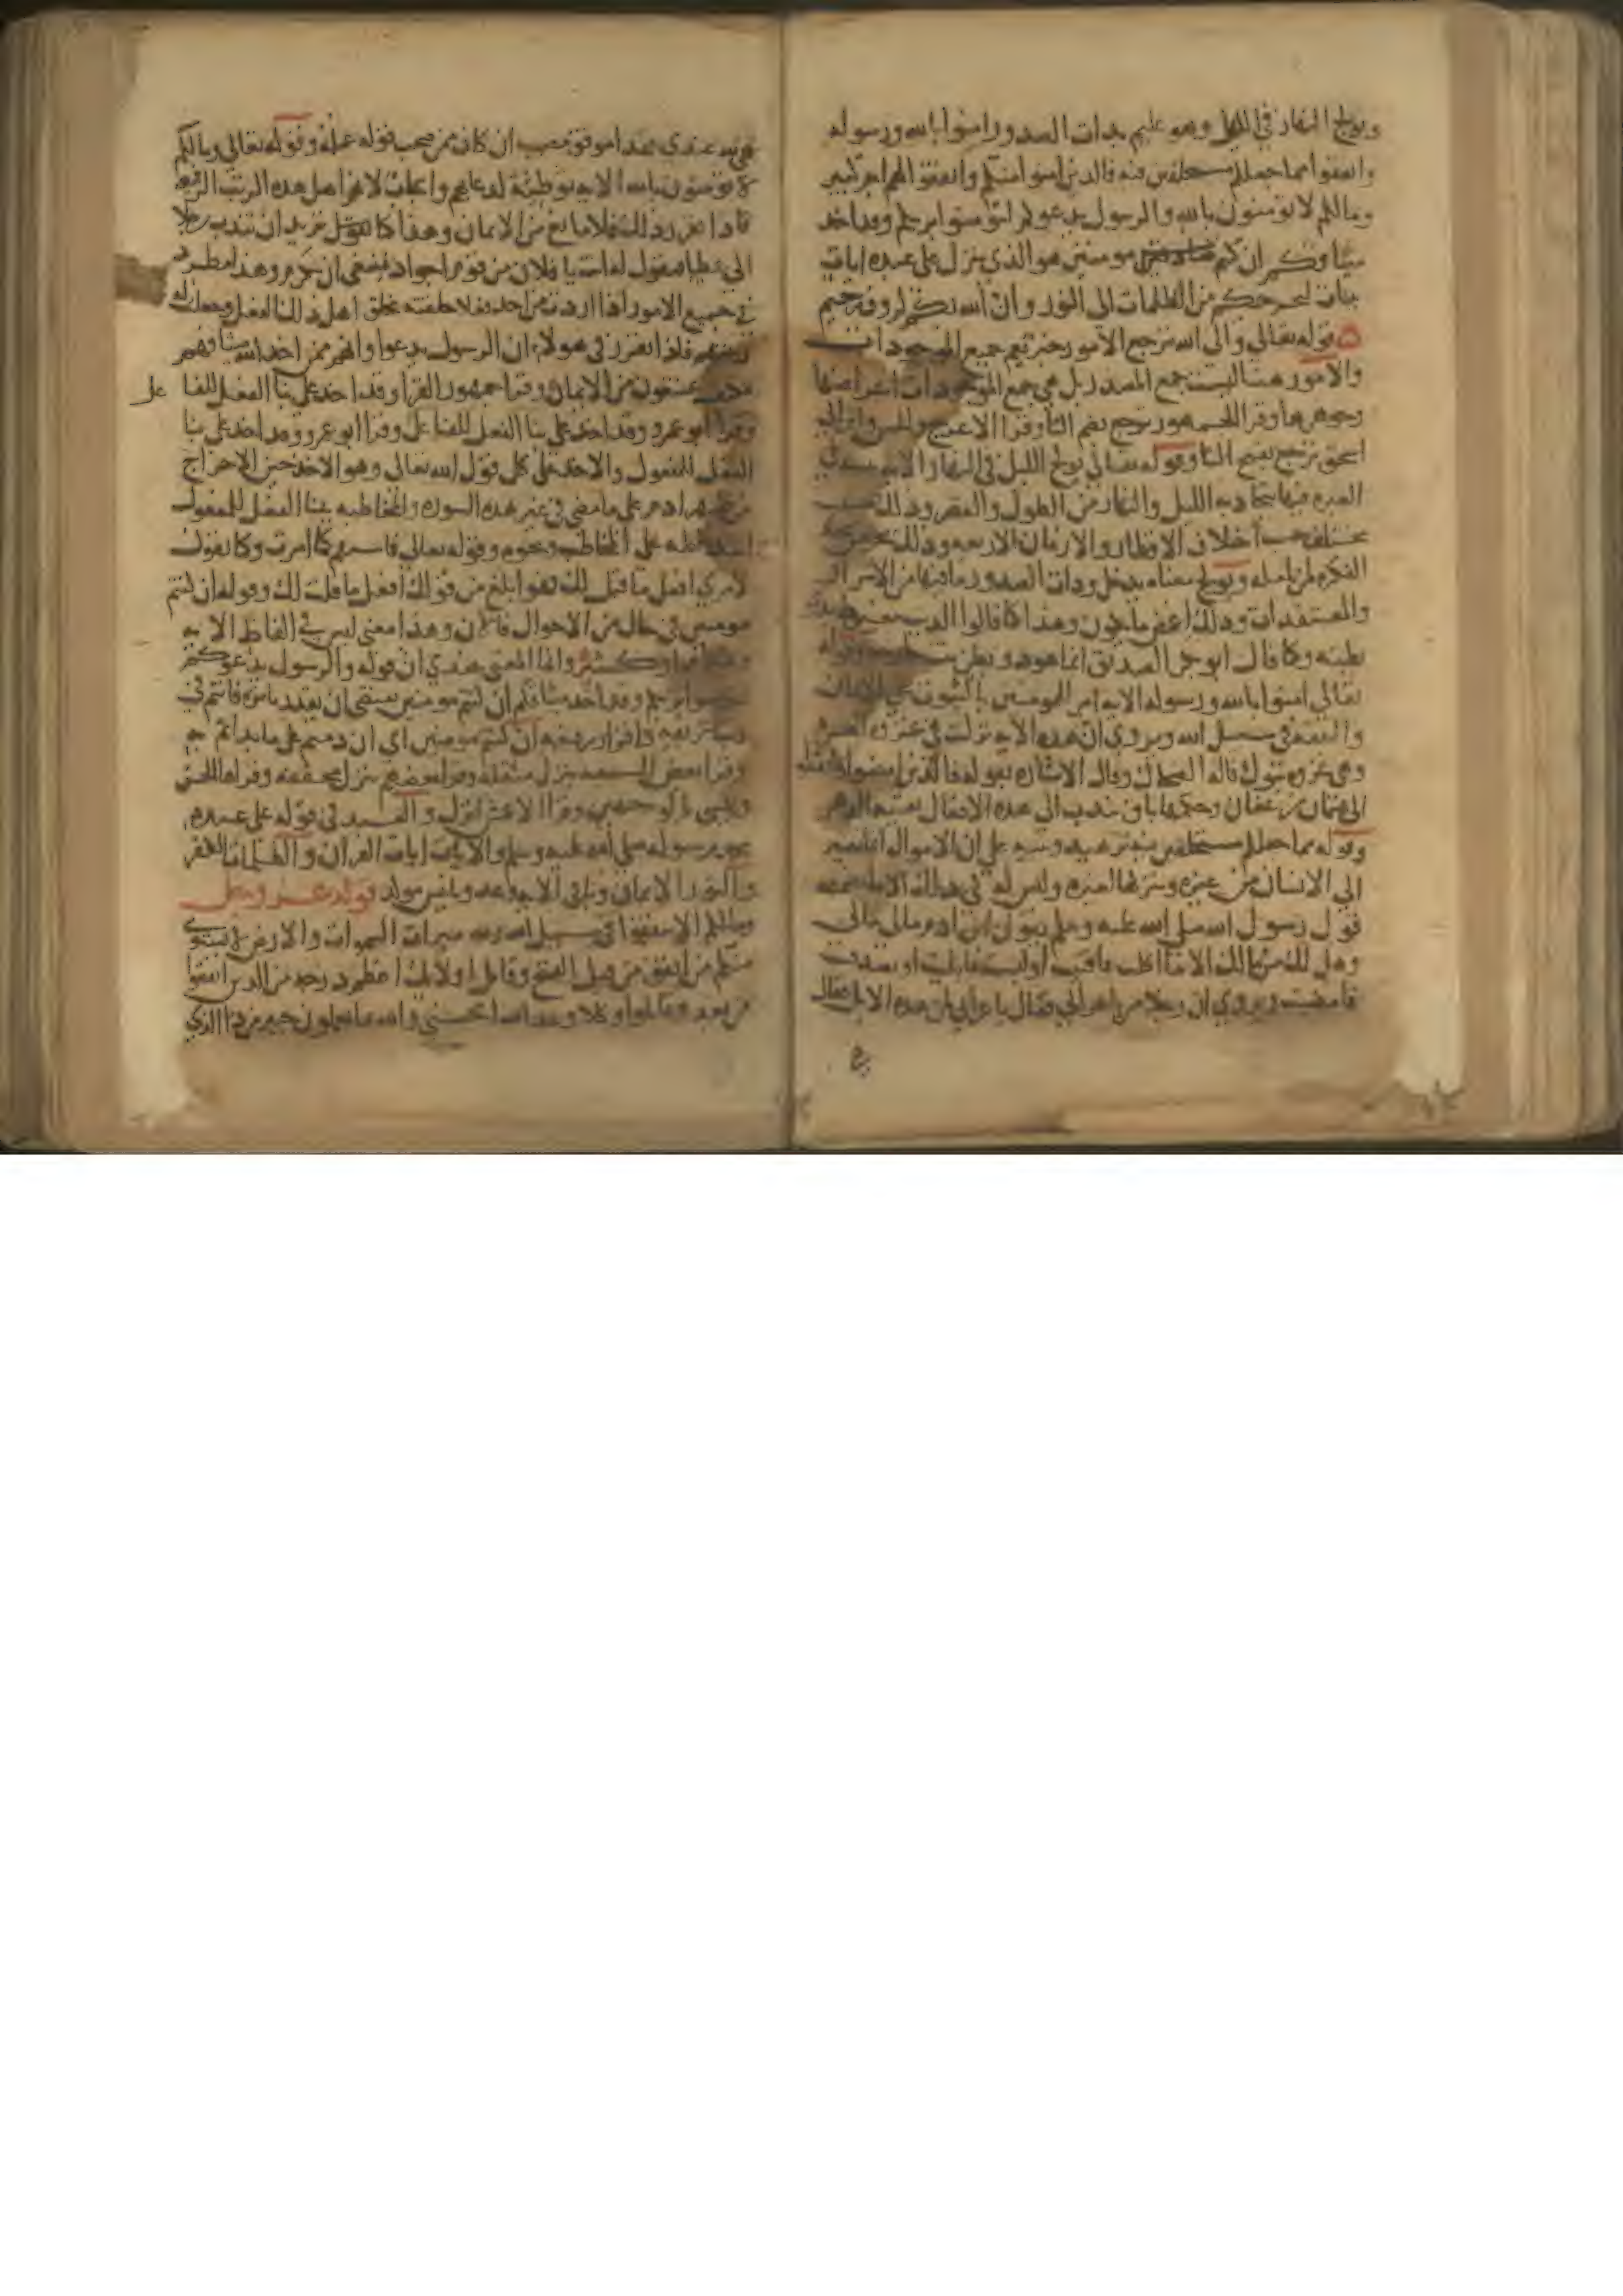 ويولج النهار في الليل وهو عليم بذات الصدور امنوا بالله ورسوله
وانفقوا مما جعلكم مستخلفين فيه فالذين امنوا منكم وانفقوا لهم اجر كبير
ومالكم لا تومنون بالله والرسول يدعوكم لتومنوا بربكم وقد اخذ
ميثاقكم ان كنتم مومنين هو الذي ينزل على عبده ايات
بينات ليخرجكم من الظلمات الى النور وان الله بكم لروف رحيم
قوله تعالى والى الله ترجع الامور خبر يعم جميع الموجودات
والامور هنا ليست جمع المصدر بل هي جمع الموجودات اعراضها
وجوهرها وقرا الجمهور ترجع بضم التا وقرا الاعرج والحسن وابن ابي
اسحق ترجع بفتح التا وقوله تعالى يولج الليل في النهار الاية
العبره فيما يتجاذبه الليل والنهار من الطول والقصر وذلك
مختلف حسب اختلاف الاقطار والازمان الاربعه وذلك بحر
الفكره لمن تامله ويولج معناه يدخل وذات الصدور ما فيها من الاسرار
والمعتقدات وذلك اغمض ما يكون وهذا كما قالوا الذيب
بطنه وكما قال ابو بكر الصديق انما هو ذو بطن بنت خارجه وقوله
تعالى امنوا بالله ورسوله الاية امر للمومنين بالثبوت على الايمان
والنفقه في سبيل الله ويروى ان هذه الايه نزلت في غزوه العسره
وهي غزوه تبوك قاله الضحاك وقال الاشاره بقوله فالذين امنوا وانفقوا
الى عثمان بن عفان وحكمها باق يندب الى هذه الافعال بقيه الدهر
وقوله مما جعلكم مستخلفين فيه تزهيد وتنبيه على ان الاموال انما تصير
الى الانسان من غيره ويتركها لغيره وليس له في ذلك الا ما تضمنه
قول رسول الله صلى الله عليه وسلم يقول ابن ادم مالي مالي
وهل لك من مالك الا ما اكلت فافنيت او لبست فابليت او تصدقت
فامضيت ويروى ان رجلا مر باعرابي فقال يا اعرابي لمن هذه الابل فقال
هي لله عندي فهذا موفق مصيب ان كان ممن صحب قوله عمله وقوله تعالى ومالكم
لا تومنون بالله الاية توطئة لدعايهم وايجاب لانهم اهل هذه الرتب الرفيعه
فاذا تقرر ذلك فلا مانع من الايمان وهذا كما تقول تريد ان تندب رجلا
الى عطا فتقول له انت يا فلان من قوم اجواد فينبغي ان تكرم وهذا مطرد
في جميع الامور اذا اردت من احد فعلا خلقته بخلق اهل ذلك الفعل وجعلت له
رتبتهم فاذا تقرر في هولاء ان الرسول يدعوا وانهم ممن اخذ الله ميثاقهم
فكيف يمتنعون من الايمان وقرا جمهور القرا وقد اخذ على بنا الفعل للفا
عل
وقرا ابو عمرو وقد اخذ على بنا الفعل للفاعل وقرا ابو عمرو وقد اخذ على بنا
الفعل للمفعول والاخذ على كل قول الله تعالى وهو الاخذ حين الاخراج
من ظهر ادم على ما مضى في غير هذه السورة والمخاطبة ببنا الفعل للمفعول
اشد غلظه على المخاطب ونحوه وقوله تعالى فاستقم كما امرت وكما تقول
لامري افعل ما قيل لك فهو ابلغ من قولك افعل ما قلت لك وقوله ان كنتم
مومنين في حال من الاحوال فالان وهذا معنى ليس في الفاظ الايه
وانما المعنى عندي ان قوله والرسول يدعوكم
لتومنوا بربكم وقد اخذ ميثاقكم ان كنتم مومنين يقتضي ان يقدر باثره فانتم في
رتب شريفه واقدار رفيعه ان كنتم مومنين اي ان دمتم على ما بداتم به
وقرا بعض السبعه ينزل مثقله وقرا بعضهم ينزل مخففه وقرا الحسن
وعيسى بالوجهين وقرا الاعمش انزل والعبد في قوله على عبده
محمد رسوله صلى الله عليه وسلم والايات ايات القران والظلمات الكفر
والنور الايمان وباقي الايه وعد وتانيس موكد قوله عز وجل
ومالكم الا تنفقوا في سبيل الله ولله ميراث السموات والارض لا يستوي
منكم من انفق من قبل الفتح وقاتل اولايك اعظم درجه من الذين انفقوا
من بعد وقاتلوا وكلا وعد الله الحسنى والله بما تعملون خبير من ذا الذي